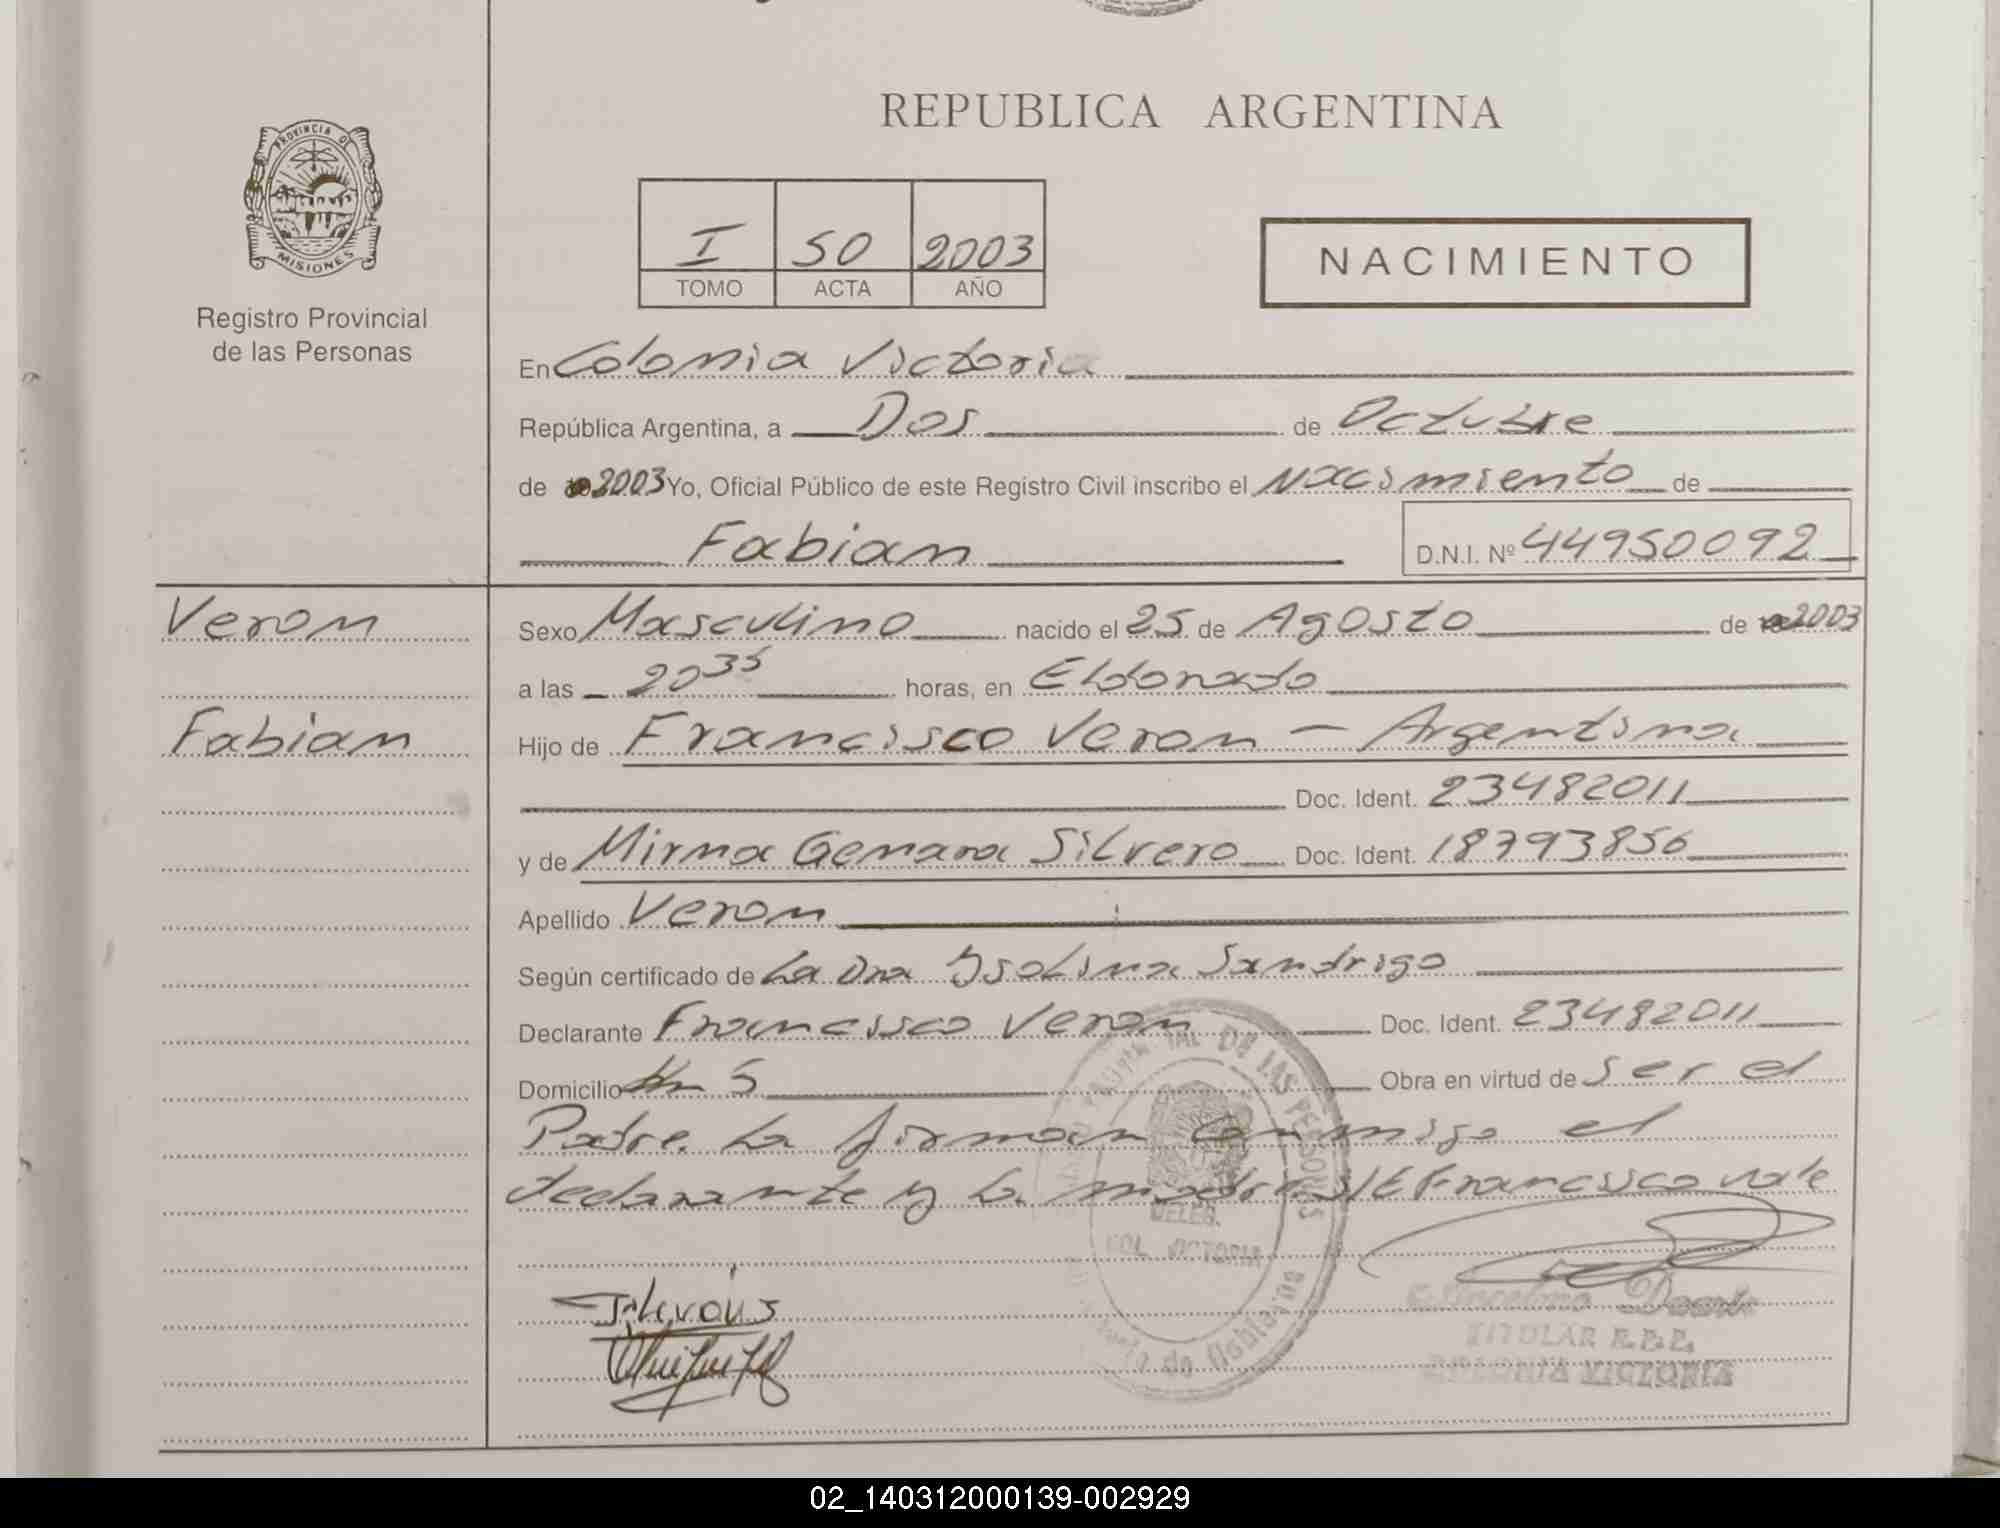 REPUBLICA ARGENTINA
PROVINCIA DE
MISIONES
Registro Provincial
de las Personas
I 50 2003
TOMO ACTA AÑO
NACIMIENTO
En Colonia Victoria
República Argentina, a Dos de Octubre
de 2003 Yo, Oficial Público de este Registro Civil inscribo el Nacimiento de
Fabian D.N.I. Nº 44950092
Veron
Fabian
Sexo Masculino nacido el 25 de Agosto de 2003
a las 20 35 horas, en Eldorado
Hijo de Francisco Veron - Argentina
Doc. Ident. 23482011
y de Mirna Genara Silvero Doc. Ident. 18793856
Apellido Veron
Según certificado de La Dra Ysolina Sandrigo
Declarante Francisco Veron Doc. Ident. 23482011
Domicilio Km 5 Obra en virtud de ser el
Padre. La firman conmigo el
declarante y la madre S/E Francisco vale
DE LAS PERSONAS
DELEG.
COL. VICTORIA
TITULAR
COLONIA VICTORIA
02_140312000139-002929